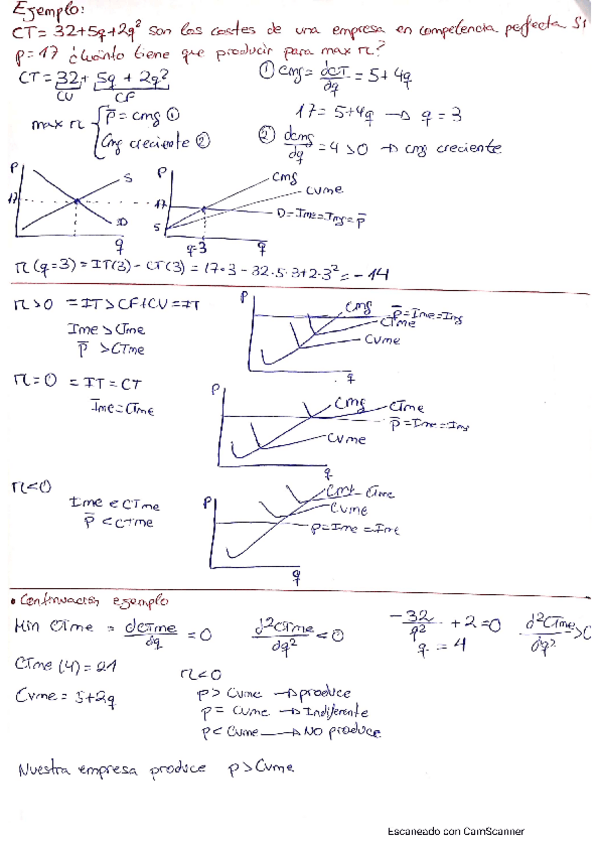 Ejemplo:
CT= 32+5q+2q² son los costes de una empresa en competencia perfecta. Si
p=17 ¿Cuánto tiene que producir para max π?
CT = 32 + 5q + 2q²
CV CF
① Cmg = dCT/dq = 5+4q
17 = 5+4q → q = 3
max π { p̄ = cmg ①
Cmg creciente ②
② dcmg/dq = 4 > 0 → cmg creciente
P
17
S
D
q
P
17
5
Cmg
Cvme
D=Ime=Img=p̄
q=3
q
π(q=3) = IT(3) - CT(3) = 17·3 - 32·5·3+2·3² = -14
π>0 = IT>CF+CV=IT
Ime > CTme
p̄ > CTme
P
Cmg
p̄=Ime=Img
CTme
Cvme
q
π=0 = IT=CT
Ime=CTme
P
Cmg
CTme
p̄=Ime=Img
Cvme
q
π<0
Ime < CTme
p̄ < CTme
P
CTme
Cvme
q
• Continuación ejemplo
Min CTme = dCTme/dq = 0
d²CTme/dq² < 0
-32/q² + 2 = 0
q = 4
d²CTme/dq² > 0
CTme (4) = 21
Cvme = 5+2q
π<0
p> Cvme → produce
p= Cvme → Indiferente
p< Cvme → NO produce
Nuestra empresa produce p>Cvme
Escaneado con CamScanner